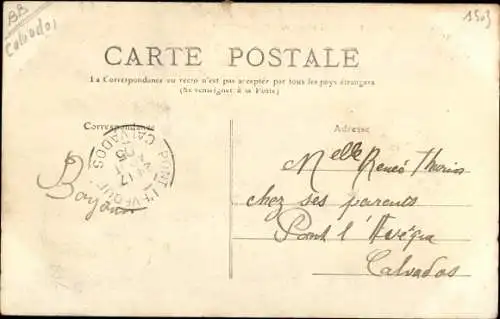 BB
Calvados
1503
CARTE POSTALE
La Correspondance au recto n'est pas acceptée par tous les pays étrangers
(Se renseigner à la Poste)
Correspondance
Adresse
PONT-L'EVEQUE
CALVADOS
17
05
Melle Renée
chez ses parents
Pont l'Evêque
Calvados